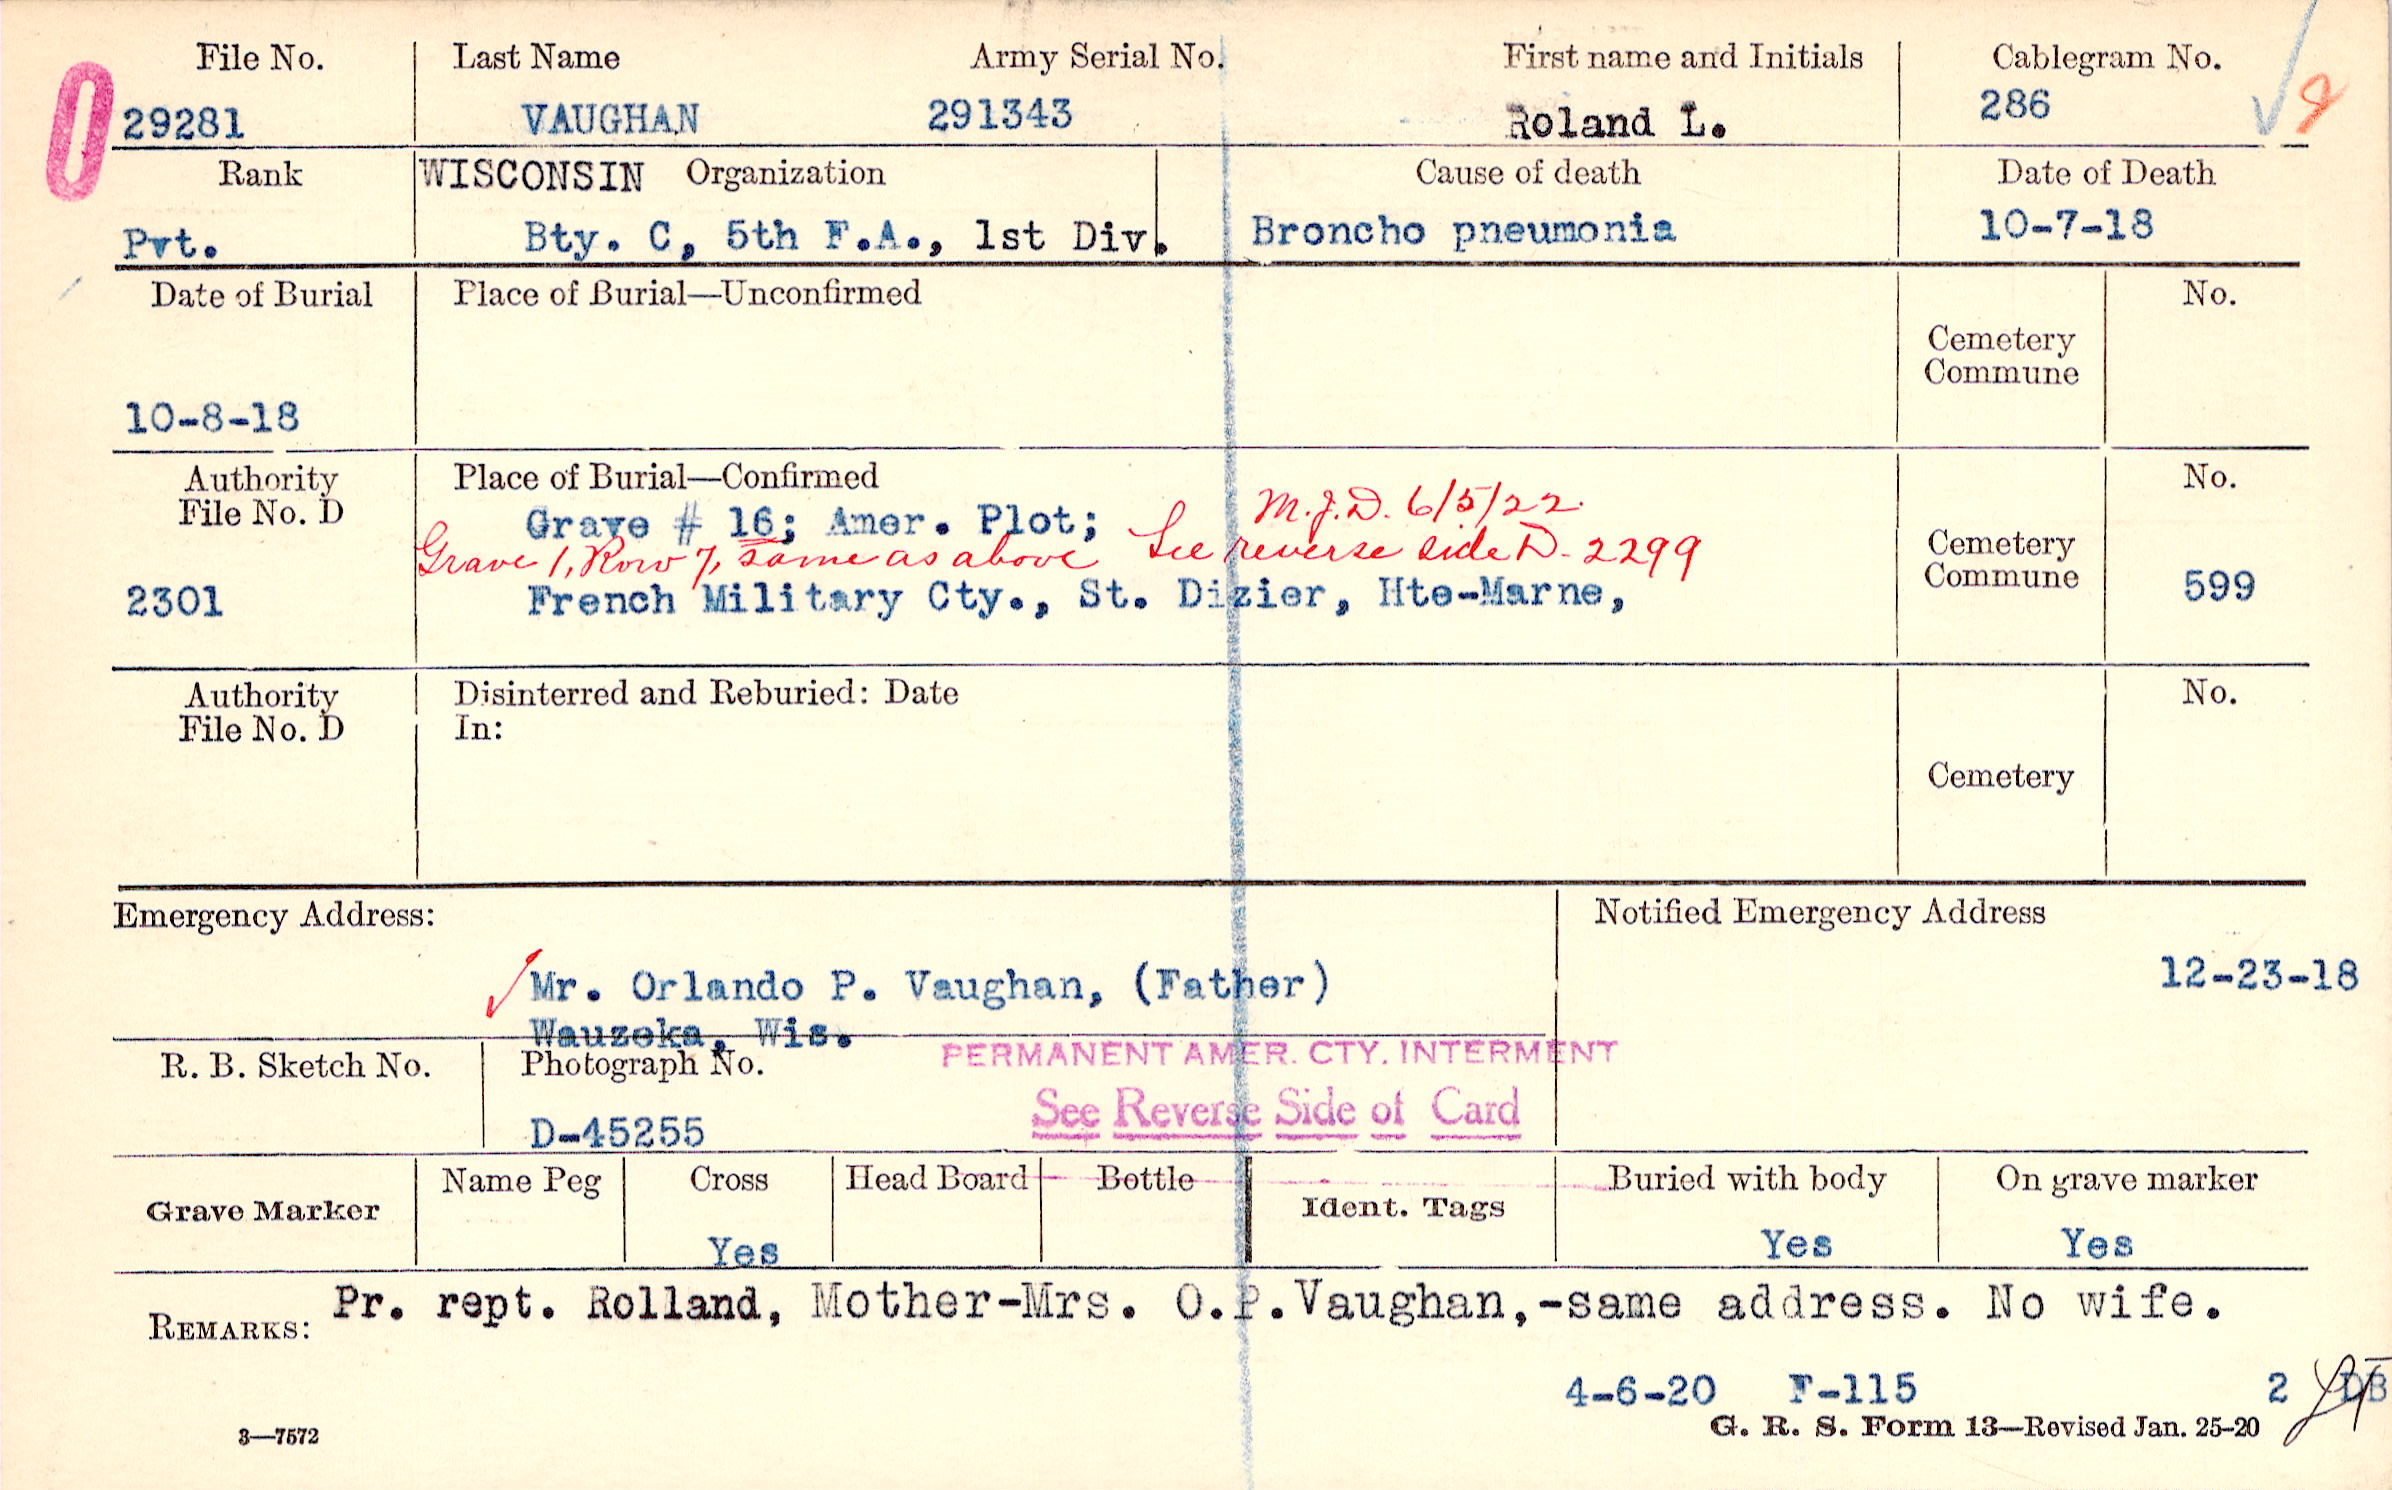 File No. Last Name Army Serial No. First name and Initials Cablegram No.
29281 VAUGHAN 291343 Roland L. 286
Rank WISCONSIN Organization Cause of death Date of Death
Pvt. Bty. C, 5th F.A., 1st Div. Broncho pneumonia 10-7-18
Date of Burial Place of Burial—Unconfirmed No.
Cemetery
Commune
10-8-18
Authority Place of Burial—Confirmed No.
File No. D
M.J.D. 6/5/22
Grave # 16; Amer. Plot;
Grave 1, Row 7, same as above See reverse side D-2299
Cemetery
Commune
2301 French Military Cty., St. Dizier, Hte-Marne, 599
Authority Disinterred and Reburied: Date No.
File No. D In:
Cemetery
Emergency Address: Notified Emergency Address
12-23-18
Mr. Orlando P. Vaughan, (Father)
Wauzeka, Wis.
PERMANENT AMER. CTY. INTERMENT
R. B. Sketch No. Photograph No.
See Reverse Side of Card
D-45255
Grave Marker Name Peg Cross Head Board Bottle Ident. Tags Buried with body On grave marker
Yes Yes Yes
REMARKS: Pr. rept. Rolland, Mother-Mrs. O.P.Vaughan,-same address. No wife.
4-6-20 F-115 2 DB
3—7572 G. R. S. Form 13—Revised Jan. 25-20